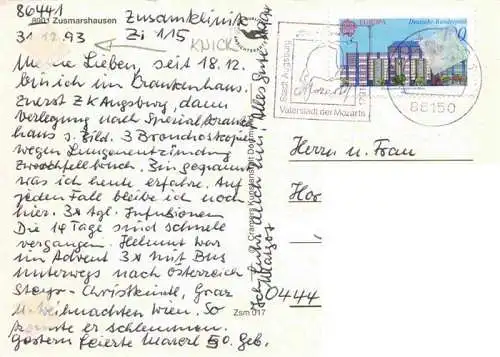 86441
8901 Zusmarshausen
Zusamklinik
31.12.93
Zi 115
KNICK
Meine Lieben, seit 18.12.
bin ich im Krankenhaus.
Zuerst ZK Augsburg, dann
Verlegung nach Spezialkranken
haus s. Bild. 3 Bronchoskopien
wegen Lungenentzündung
Zwerchfellbruch. Bin gespannt
was ich heute erfahre. Auf
jeden Fall bleibe ich noch
hier. 3x tgl. Infusionen
Die 14 Tage sind schnell
vergangen. Helmut war
im Advent 3x mit Bus
unterwegs nach Österreich
Steyr - Christkindl, Graz
u. Weihnachten Wien. So
konnte er schlemmen.
Gestern feierte Marcel 50. Geb.
Alles Gute
Cramers Kunstanstalt Dortmund
Zsm 017
EUROPA
Deutsche Bundespost
100
Stadt Augsburg
Mozart
Vaterstadt der Mozarts
86150
Herrn u. Frau
Hor
0444